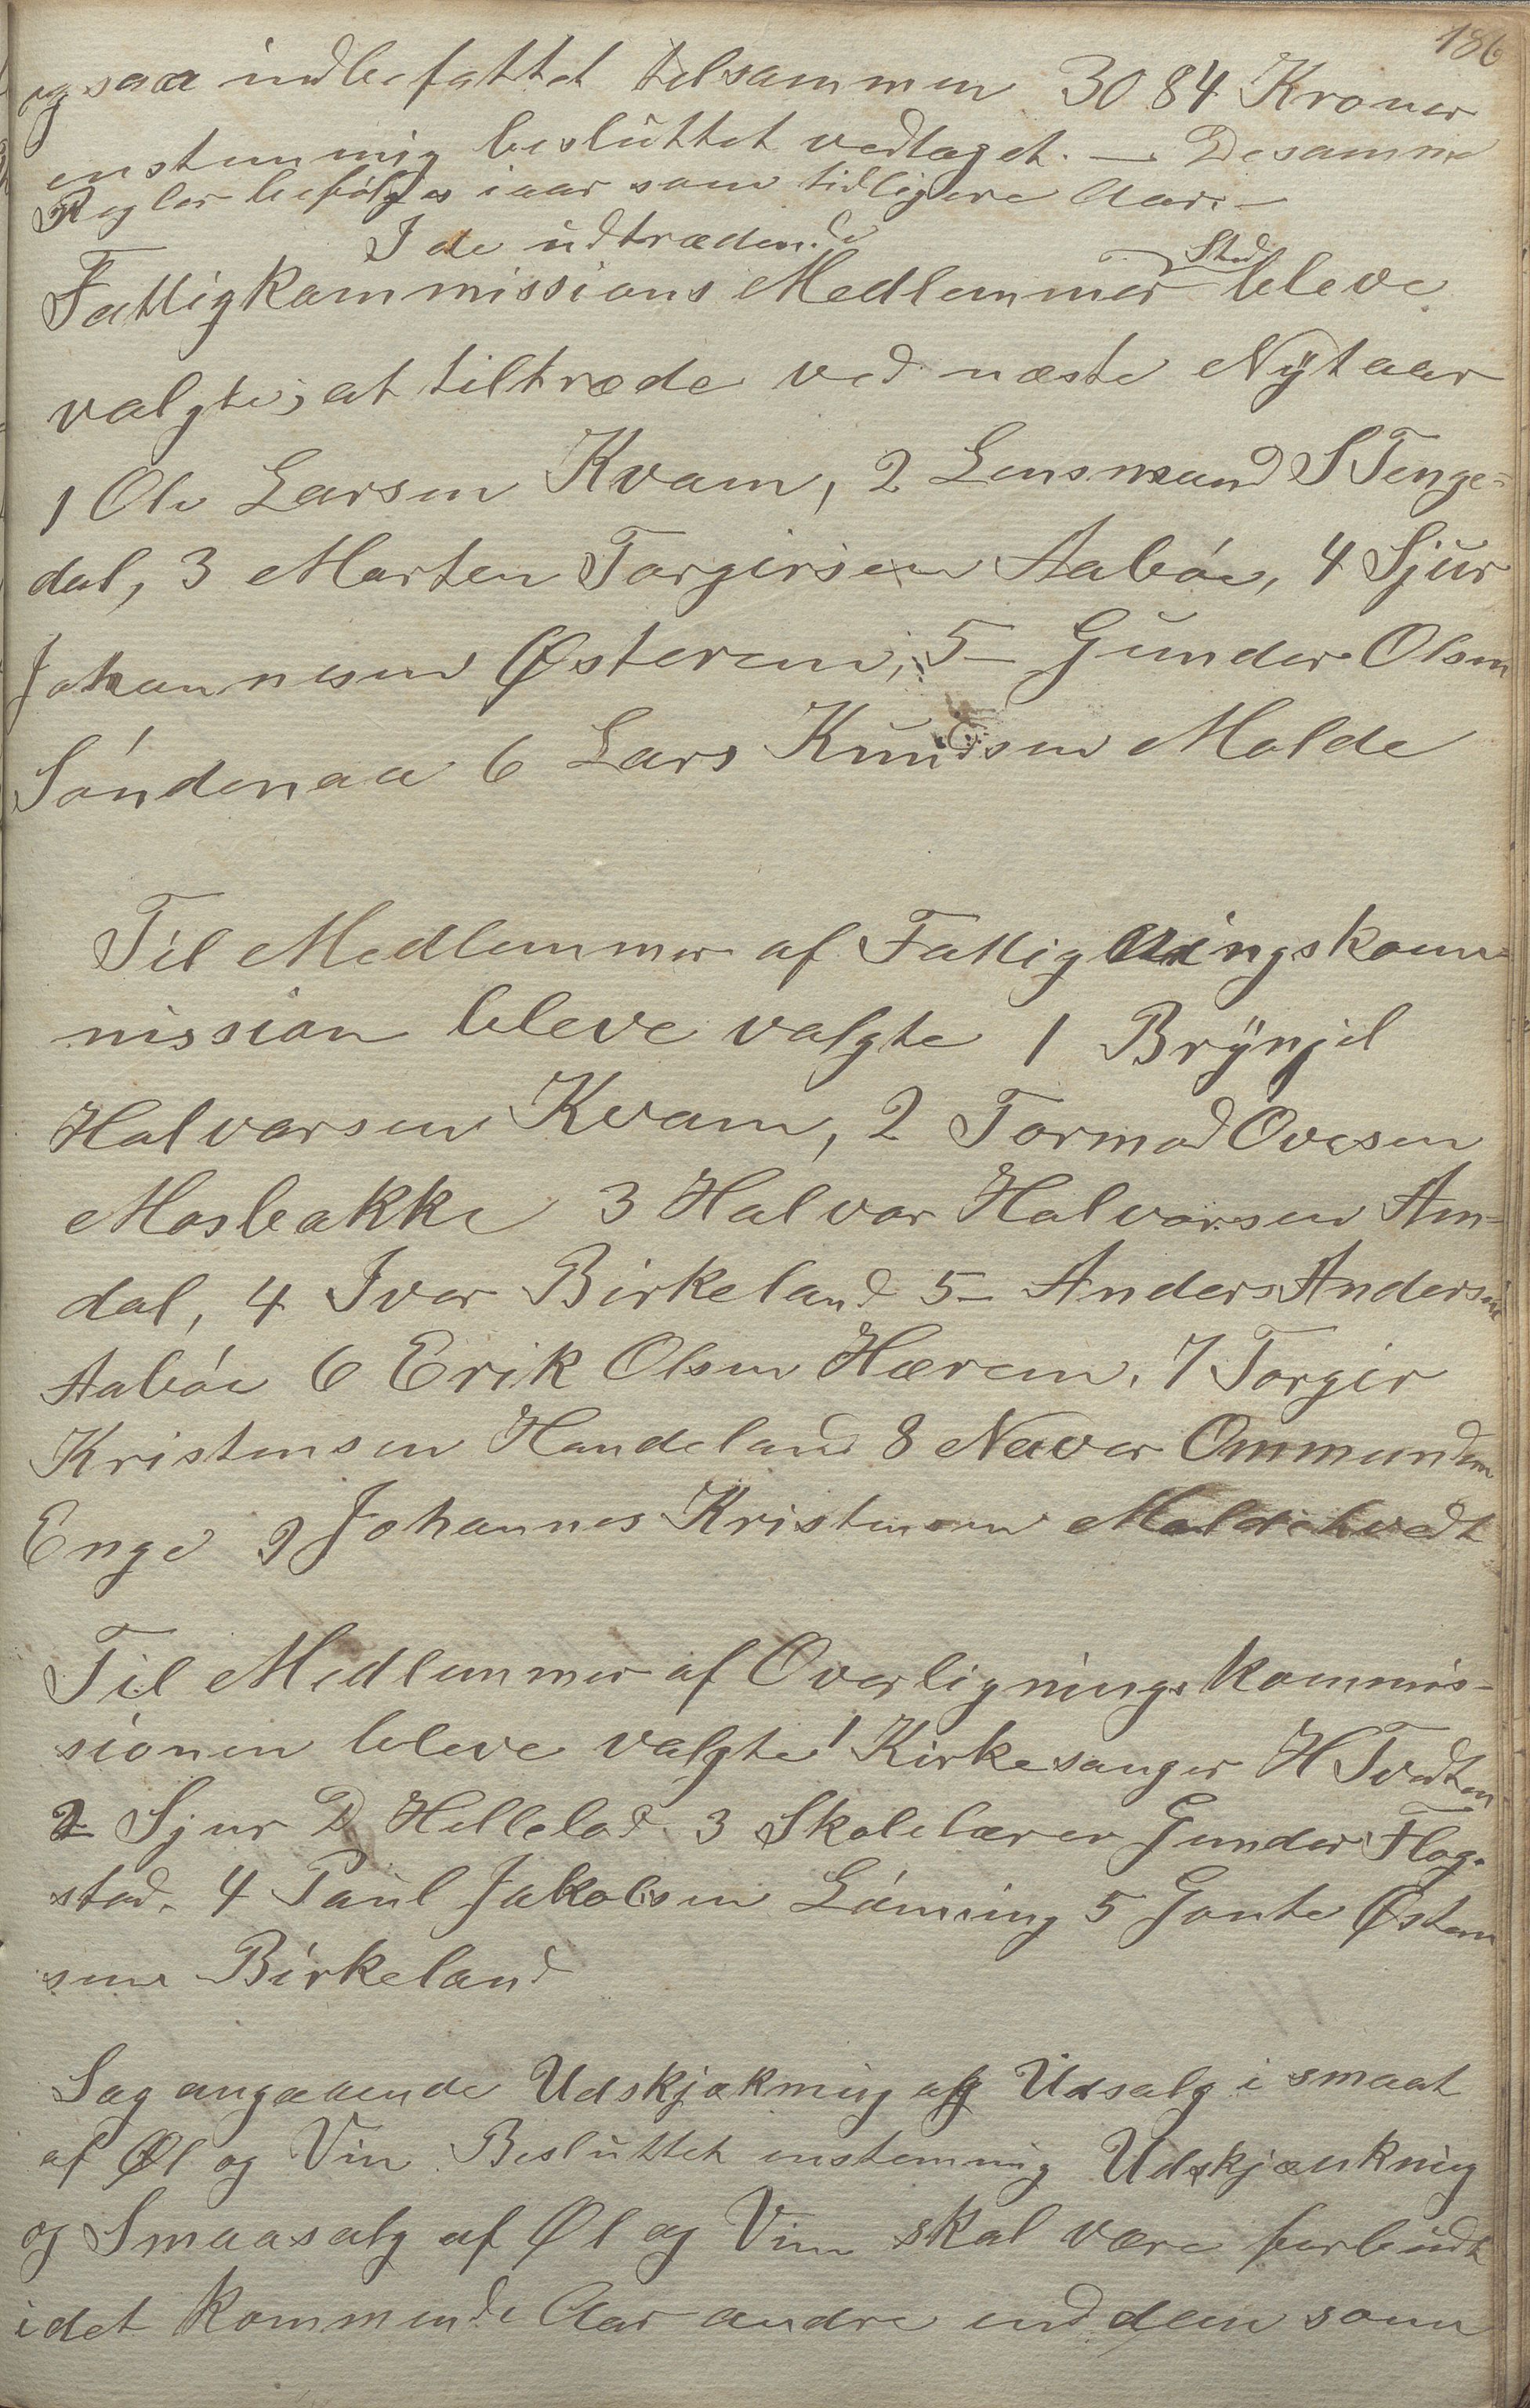 186
ogsaa indbefattet tilsammen 3084 Kroner
enstemmig besluttet vedtaget. — Desamme
Regler befølges iaar som tidligere Aar. —
I de udtrædende
Fattigkommissions Medlemmer Sted bleve
valgte, at tiltræde ved næste Nytaar
1 Ole Larsen Kvam, 2 Lensmand S Tenge=
dal, 3 Morten Torgirsen Aabøe, 4 Sjur
Johannesen Østerem, 5 Gunder Olsen
Søndenaa 6 Lars Knudsen Molde
Til Medlemmer af Fattigligningskom=
mission bleve valgte 1 Brynjel
Halvorsen Kvam, 2 Tormod Ovesen
Mosbakke 3 Halvor Halvorsen Am=
dal, 4 Ivar Birkeland 5 Anders Andersen
Aabøe 6 Erik Olsen Hærem. 7 Torgir
Kristensen Handeland 8 Næver Ommundsen
Enge 9 Johannes Kristensen Moldetvedt
Til Medlemmer af Overlignings kommis-
sionen bleve valgte 1 Kirkesanger H Tvedten
2 Sjur D Hellelad. 3 Skolelærer Gunder Flog-
stad. 4 Paul Jakobsen Lønning 5 Gonte Østen
sen Birkeland
Sag angaaende Udskjækning og Udsalg i smaat
af Øl og Vin. Besluttet enstemmig Udskjænkning
og Smaasalg af Øl og Vin skal være forbudt
i det kommende Aar andre end dem som